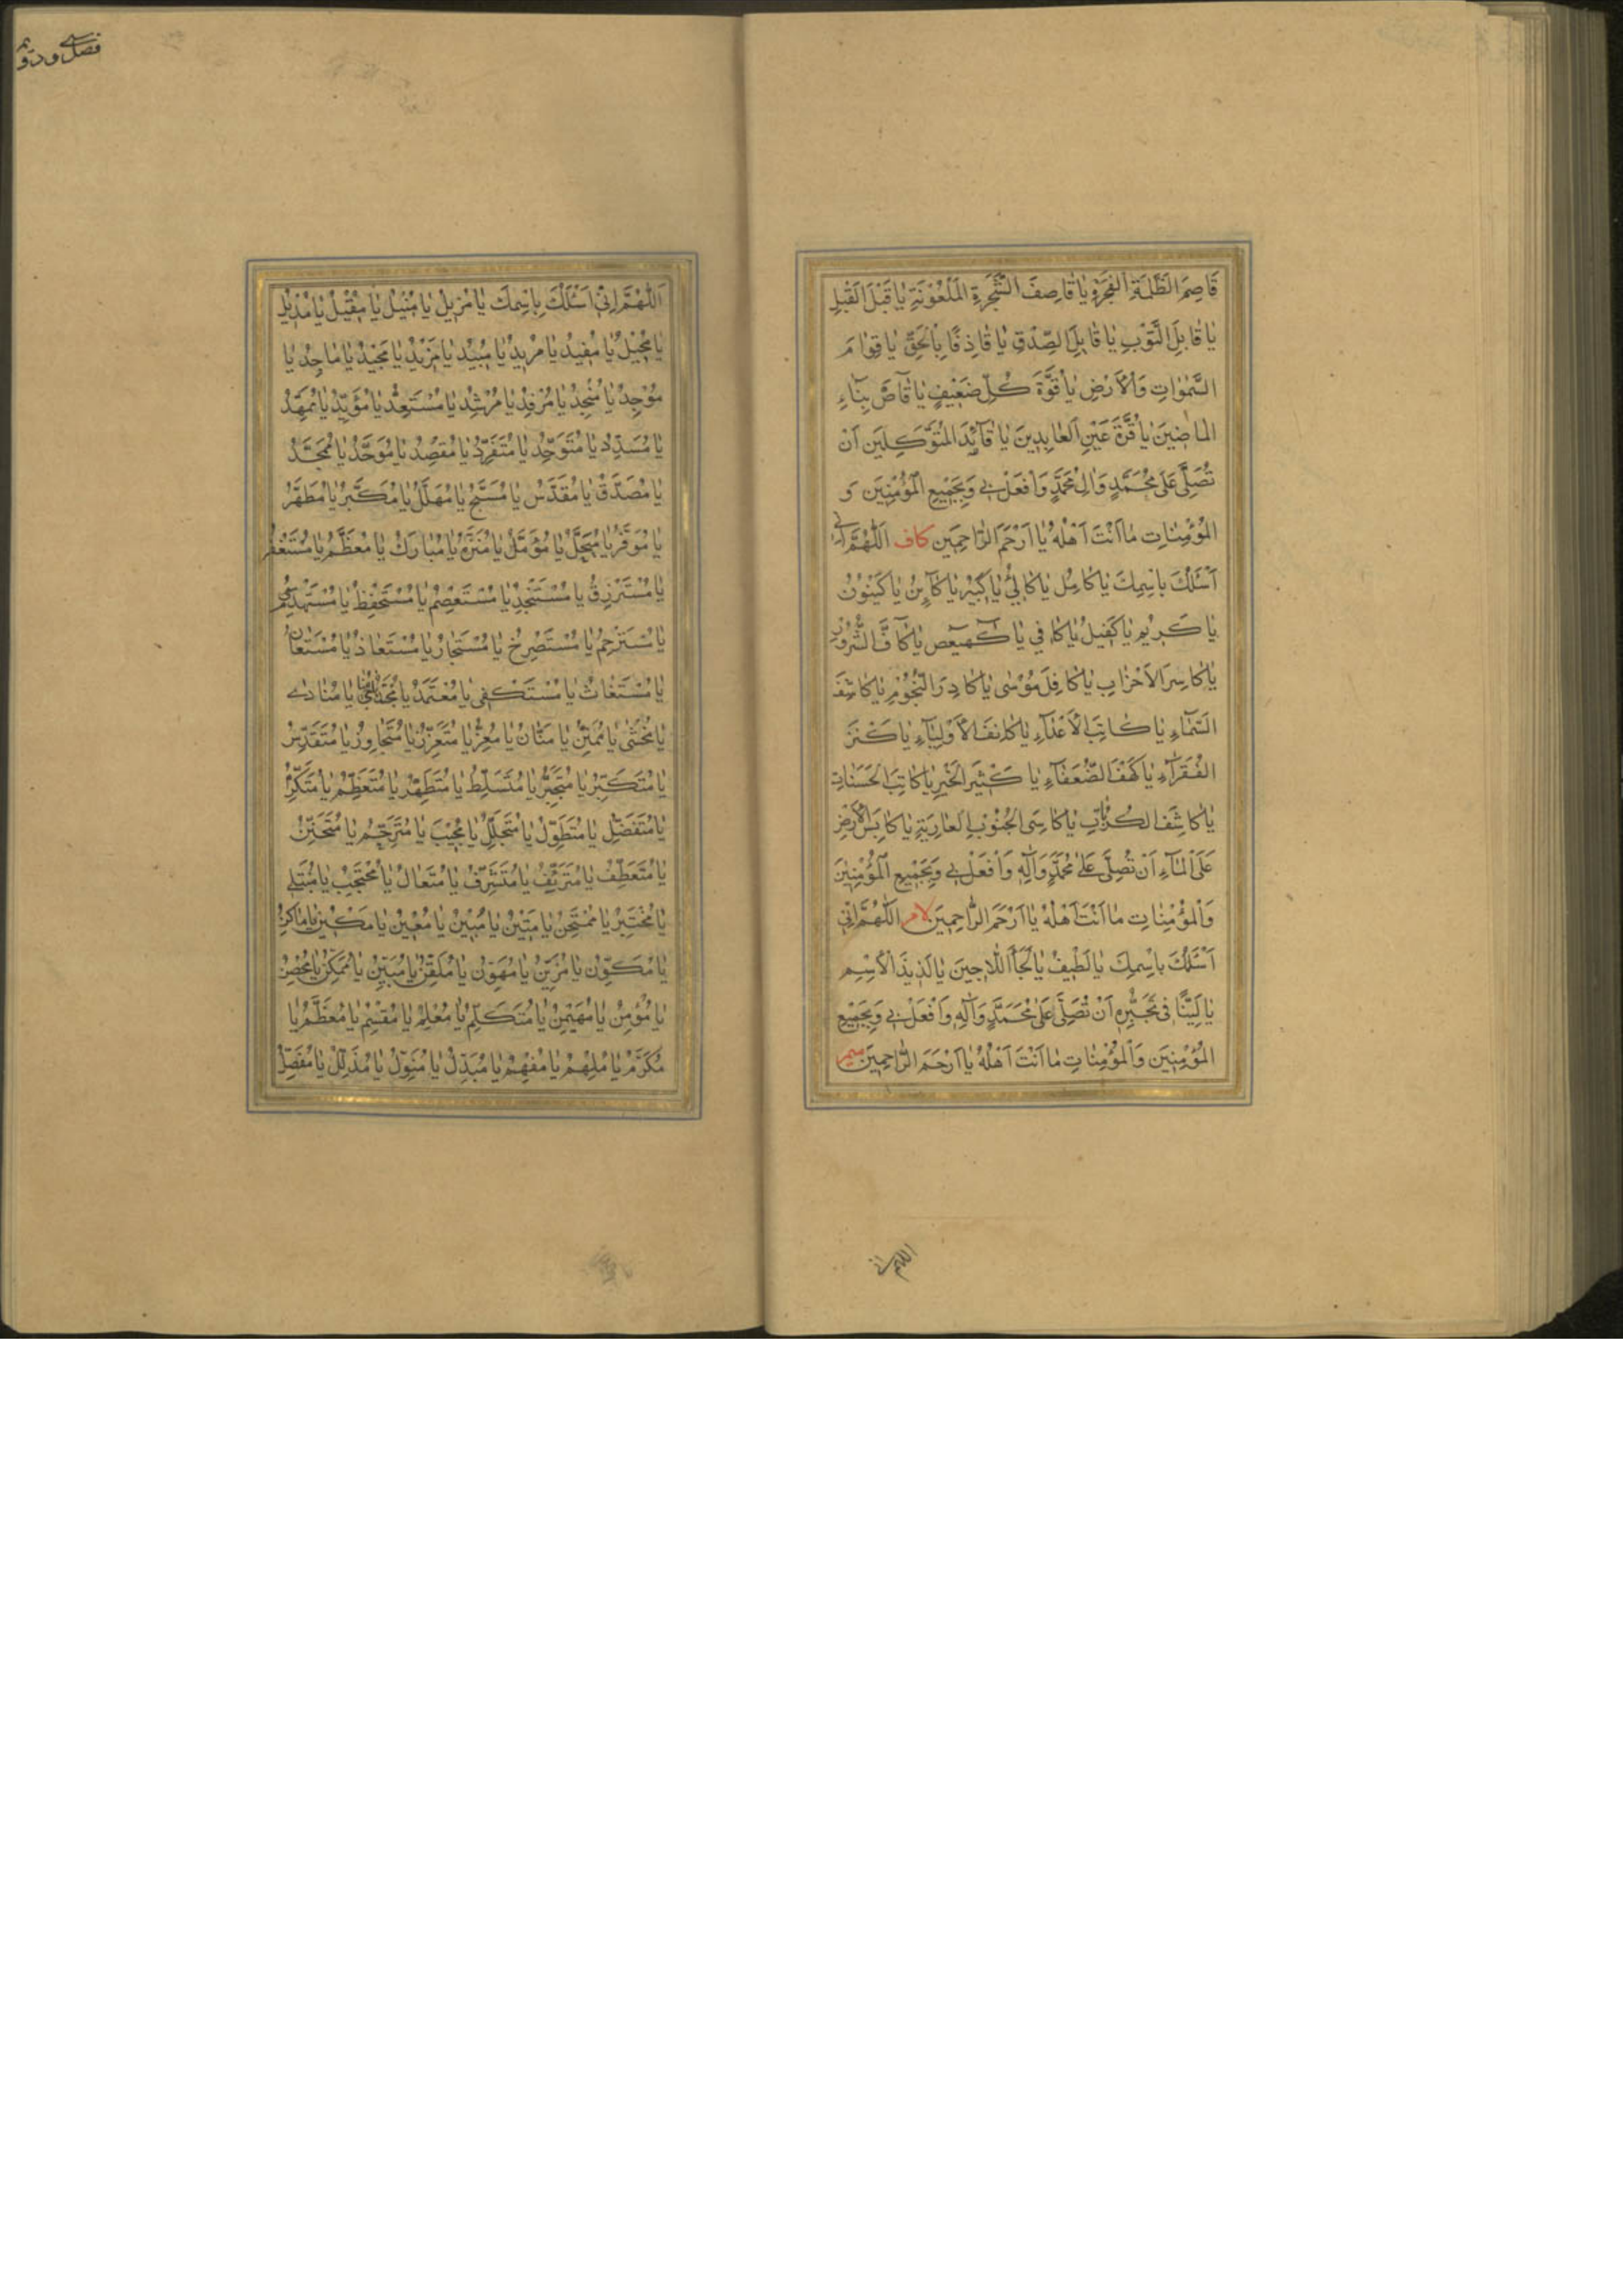 قَاصِمَ الظَّلَمَةِ الْفَجَرَةِ يَا قَاصِفَ الشَّجَرَةِ الْمَلْعُوْنَةِ يَا قَبْلَ الْقَبْلِ
يَا قَابِلَ التَّوْبِ يَا قَابِلَ الصِّدْقِ يَا قَاذِفًا بِالْحَقِّ يَا قِوَامَ
السَّمٰوَاتِ وَالْاَرْضِ يَا قُوَّةَ كُلِّ ضَعِيْفٍ يَا قَاصَّ بِنَآءِ
الْمَاضِيْنَ يَا قُرَّةَ عَيْنِ الْعَابِدِيْنَ يَا قَآئِدَ الْمُتَوَكِّلِيْنَ اَنْ
تُصَلِّيَ عَلٰى مُحَمَّدٍ وَاٰلِ مُحَمَّدٍ وَافْعَلْ بِيْ وَبِجَمِيْعِ الْمُؤْمِنِيْنَ وَ
الْمُؤْمِنَاتِ مَا اَنْتَ اَهْلُهُ يَا اَرْحَمَ الرَّاحِمِيْنَ كاف اَللّٰهُمَّ اِنِّي
اَسْئَلُكَ بِاسْمِكَ يَا كَامِلُ يَا كَالِئُ يَا كَبِيْرُ يَا كَآئِنُ يَا كَيْنُوْنُ
يَا كَرِيْمُ يَا كَفِيْلُ يَا كَافِي يَا كٓهٰيٰعٓصٓ يَا كَآفَّ الشُّرُوْرِ
يَا كَاسِرَ الْاَحْزَابِ يَا كَافِلَ مُوْسٰى يَا كَادِرَ النُّجُوْمِ يَا كَاشِفَ
السَّمَآءِ يَا كَابِتَ الْاَعْدَآءِ يَا كَانِفَ الْاَوْلِيَآءِ يَا كَنْزَ
الْفُقَرَآءِ يَا كَهْفَ الضُّعَفَآءِ يَا كَثِيْرَ الْخَيْرِ يَا كَاتِبَ الْحَسَنَاتِ
يَا كَاشِفَ الْكُرُبَاتِ يَا كَاسِيَ الْجُنُوْبِ الْعَارِيَةِ يَا كَابِسَ الْاَرْضِ
عَلَى الْمَآءِ اَنْ تُصَلِّيَ عَلٰى مُحَمَّدٍ وَاٰلِهِ وَافْعَلْ بِيْ وَبِجَمِيْعِ الْمُؤْمِنِيْنَ
وَالْمُؤْمِنَاتِ مَا اَنْتَ اَهْلُهُ يَا اَرْحَمَ الرَّاحِمِيْنَ لام اَللّٰهُمَّ اِنِّيْ
اَسْئَلُكَ بِاسْمِكَ يَا لَطِيْفُ يَا لَجَأَ اللَّاجِيْنَ يَا لَذِيْذَ الْاِسْمِ
يَا لَيِّنًا فِيْ تَجَبُّرِهِ اَنْ تُصَلِّيَ عَلٰى مُحَمَّدٍ وَاٰلِهِ وَافْعَلْ بِيْ وَبِجَمِيْعِ
الْمُؤْمِنِيْنَ وَالْمُؤْمِنَاتِ مَا اَنْتَ اَهْلُهُ يَا اَرْحَمَ الرَّاحِمِيْنَ ميم
اللهم اني
فصل سى ودويم
اَللّٰهُمَّ اِنِّيْ اَسْئَلُكَ بِاسْمِكَ يَا مُزِيْلُ يَا مُنِيْلُ يَا مُقِيْلُ يَا مُدِيْلُ
يَا مُحِيْلُ يَا مُفِيْدُ يَا مُرِيْدُ يَا مُبِيْدُ يَا مَزِيْدُ يَا مَجِيْدُ يَا مَاجِدُ يَا
مُوْجِدُ يَا مُنْجِدُ يَا مُرْفِدُ يَا مُرْشِدُ يَا مُسْتَعِدُّ يَا مُؤَيِّدُ يَا مُمَهِّدُ
يَا مُسَدِّدُ يَا مُتَوَحِّدُ يَا مُتَفَرِّدُ يَا مُقْصِدُ يَا مُوَحَّدُ يَا مُمَجَّدُ
يَا مُصَدَّقُ يَا مُقَدَّسُ يَا مُسَبَّحُ يَا مُهَلَّلُ يَا مُكَبَّرُ يَا مُطَهَّرُ
يَا مُوَقَّرُ يَا مُبَجَّلُ يَا مُؤَمَّلُ يَا مُنَزَّهُ يَا مُبَارَكُ يَا مُعَظَّمُ يَا مُسْتَغْفَرُ
يَا مُسْتَرْزِقُ يَا مُسْتَنْجِدُ يَا مُسْتَعْصِمُ يَا مُسْتَحْفِظُ يَا مُسْتَهْدِي
يَا مُسْتَرْحِمُ يَا مُسْتَصْرِخُ يَا مُسْتَجَارُ يَا مُسْتَعَاذُ يَا مُسْتَعَانُ
يَا مُسْتَغَاثُ يَا مُسْتَكْفِي يَا مُعْتَمَدُ يَا مُنَادٰى
يَا مُخْتَشٰى يَا مَنَّانُ يَا مُعِزُّ يَا مُتَعَزِّزُ يَا مُتَجَاوِزُ يَا مُتَقَدِّسُ
يَا مُتَكَبِّرُ يَا مُتَجَبِّرُ يَا مُتَسَلِّطُ يَا مُتَطَهِّرُ يَا مُتَعَظِّمُ يَا مُتَكَرِّمُ
يَا مُتَفَضِّلُ يَا مُتَطَوِّلُ يَا مُتَجَلِّلُ يَا مُجِيْبُ يَا مُتَرَحِّمُ يَا مُتَحَنِّنُ
يَا مُتَعَطِّفُ يَا مُتَرَئِّفُ يَا مُتَشَرِّفُ يَا مُتَعَالُ يَا مُحْتَجِبُ يَا مُبْتَلِي
يَا مُخْتَبِرُ يَا مُمْتَحِنُ يَا مَتِيْنُ يَا مُبِيْنُ يَا مُعِيْنُ يَا مَكِيْنُ يَا مَاكِرُ
يَا مُكَوِّنُ يَا مُزَيِّنُ يَا مُهَوِّنُ يَا مُلَقِّنُ يَا مُبَيِّنُ يَا مُمَكِّنُ يَا مُحْصِنُ
يَا مُؤْمِنُ يَا مُهَيْمِنُ يَا مُتَكَلِّمُ يَا مُعْلِمُ يَا مُقْسِمُ يَا مُعَظَّمُ يَا
مُكَرَّمُ يَا مُلْهِمُ يَا مُفْهِمُ يَا مُبَدِّلُ يَا مُنَوِّلُ يَا مُذَلِّلُ يَا مُفَصِّلُ